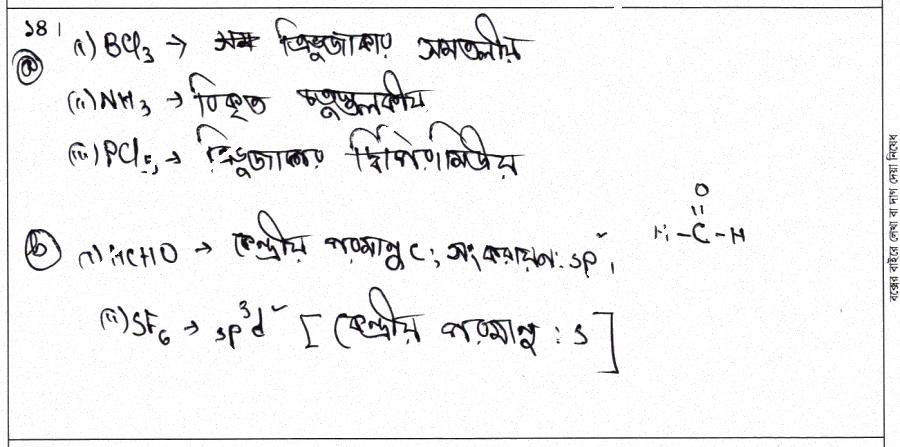 ১৪।
(a) (i) BCl₃ → ত্রিভুজাকার সমতলীয়
(ii) NH₃ → বিকৃত চতুস্তলকীয়
(iii) PCl₅ → ত্রিভুজাকার দ্বিপিরামিডীয়
O
||
H-C-H
(b) (i) HCHO → কেন্দ্রীয় পরমাণু C; সংকরায়ন: sp²,
(ii) SF₆ → sp³d² [কেন্দ্রীয় পরমাণু : S]
বক্সের বাইরে লেখা বা দাগ দেয়া নিষেধ